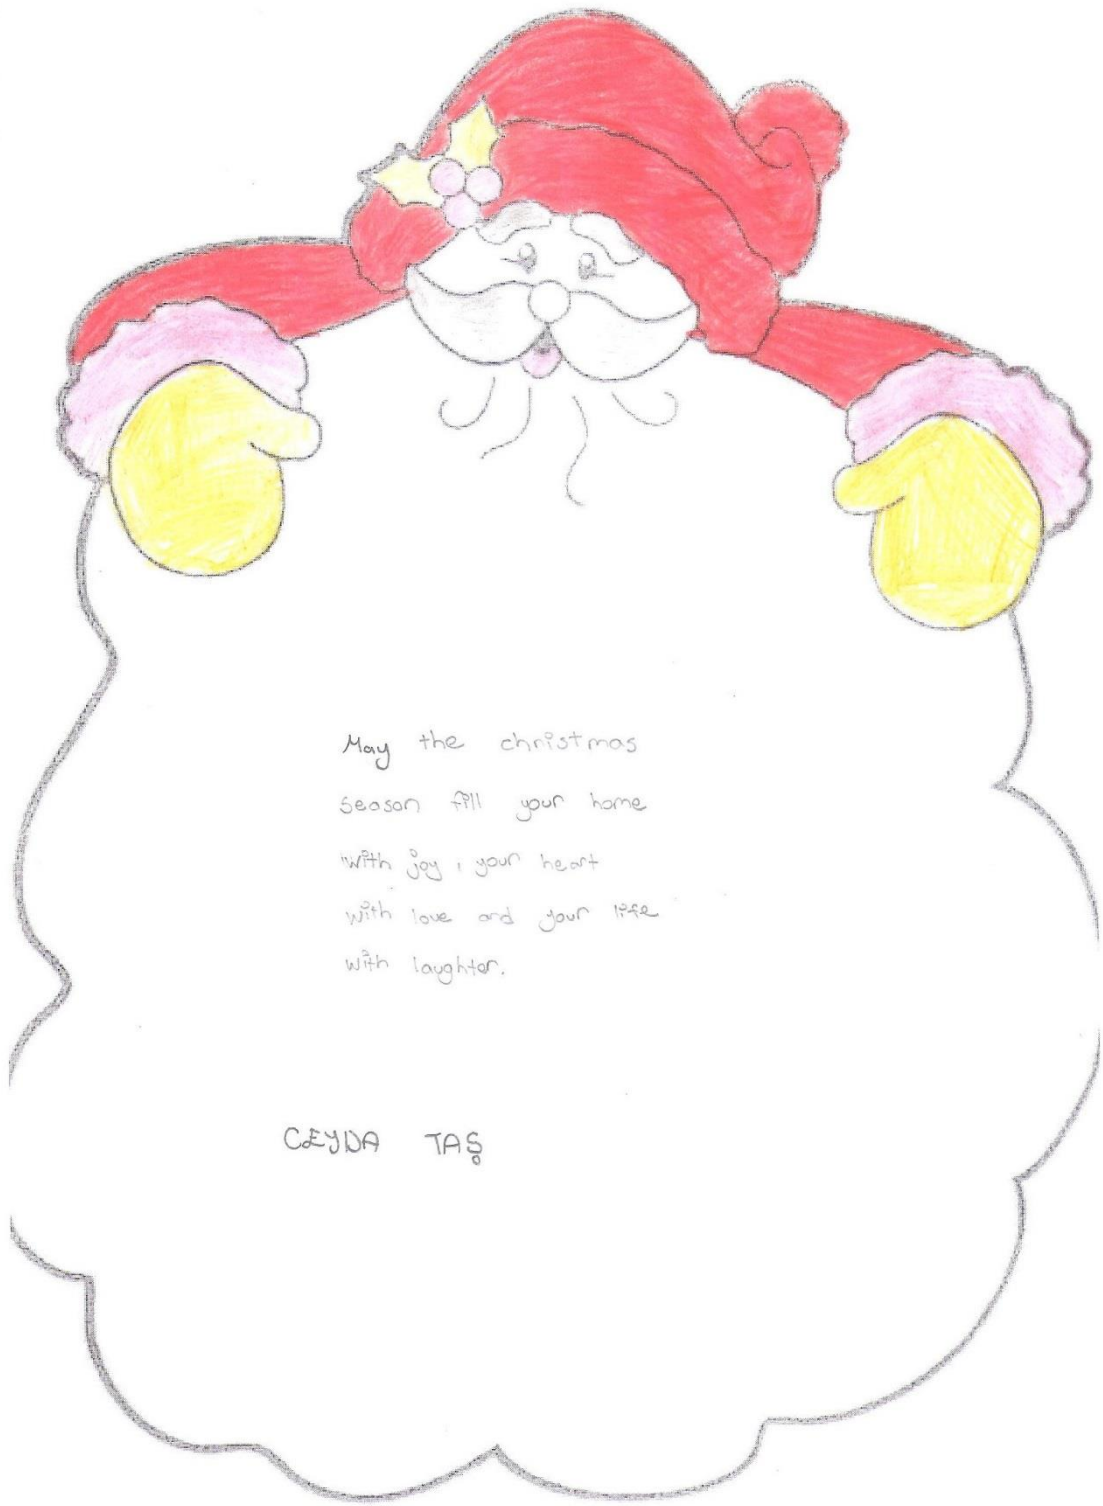 May the christmas
season fill your home
with joy, your heart
with love and your life
with laughter.
CEYDA TAŞ